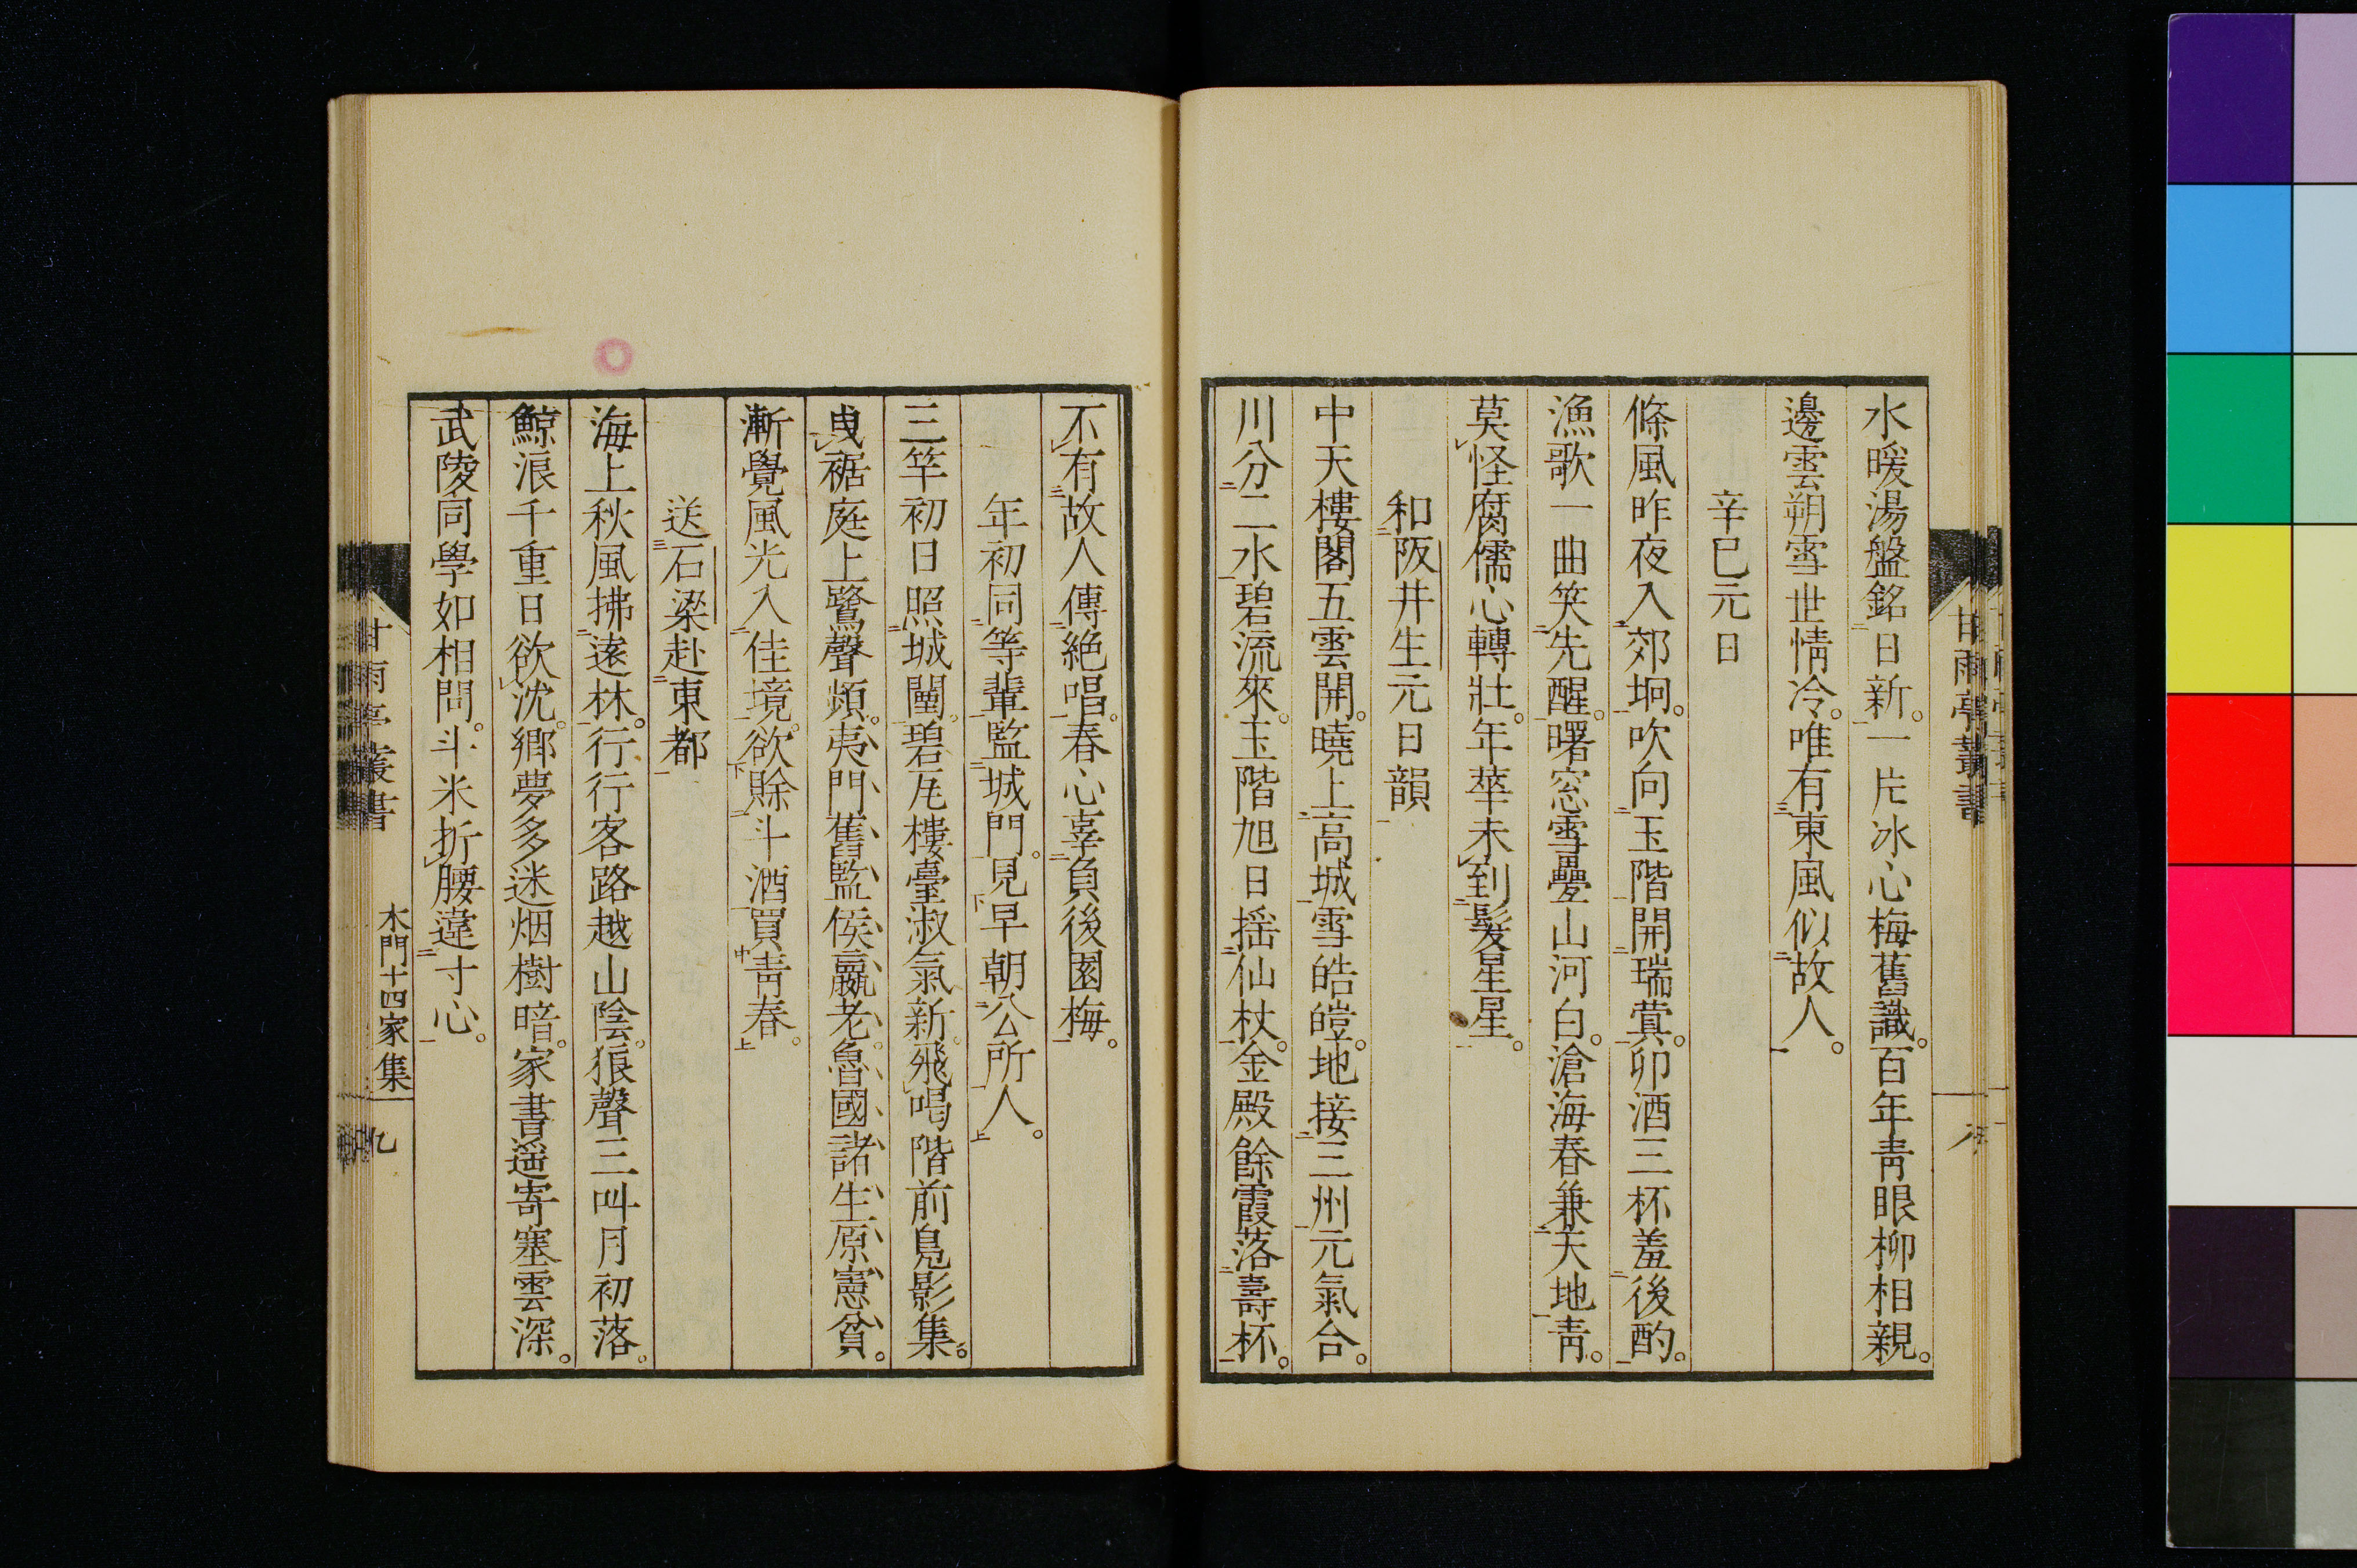 水暖湯盤銘日新。一片冰心梅舊識。百年靑眼柳相親。
邊雲朔雪世情冷。唯有東風似故人。
辛巳元日
條風昨夜入郊坰。吹向玉階開瑞蓂。卯酒三杯羞後酌。
漁歌一曲笑先醒。曙窓雪疊山河白。滄海春兼天地靑。
莫怪腐儒心轉壯。年華未到髮星星。
和阪井生元日韻
中天樓閣五雲開。曉上高城雪皓皚。地接三州元氣合。
川分二水碧流來。玉階旭日搖仙杖。金殿餘霞落壽杯。
不有故人傳絶唱。春心辜負後園梅。
年初同等輩監城門。見早朝公所人。
三竿初日照城闉。碧瓦樓臺淑氣新。飛舄階前鳧影集。
曳裾庭上鷺聲頻。夷門舊監侯嬴老。魯國諸生原憲貧。
漸覺風光入佳境。欲賖斗酒買靑春。
送石梁赴東都
海上秋風拂遠林。行行客路越山陰。猿聲三叫月初落。
鯨浪千重日欲沈。鄕夢多迷烟樹暗。家書遥寄塞雲深。
武陵同學如相問。斗米折腰違寸心。
甘雨亭叢書
木門十四家集
九
甘雨亭叢書
八